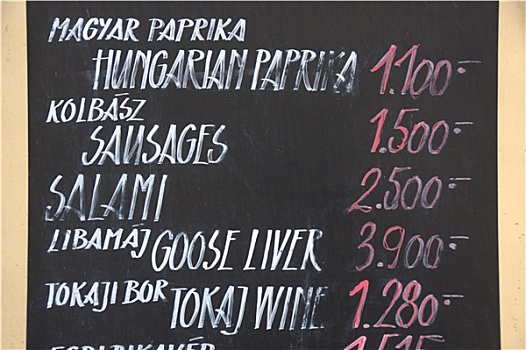 MAGYAR PAPRIKA
HUNGARIAN PAPRIKA 1.100.-
KOLBÁSZ
SAUSAGES 1.500.-
SALAMI 2.500.-
LIBAMÁJ GOOSE LIVER 3.900.-
TOKAJI BOR TOKAJ WINE 1.280.-